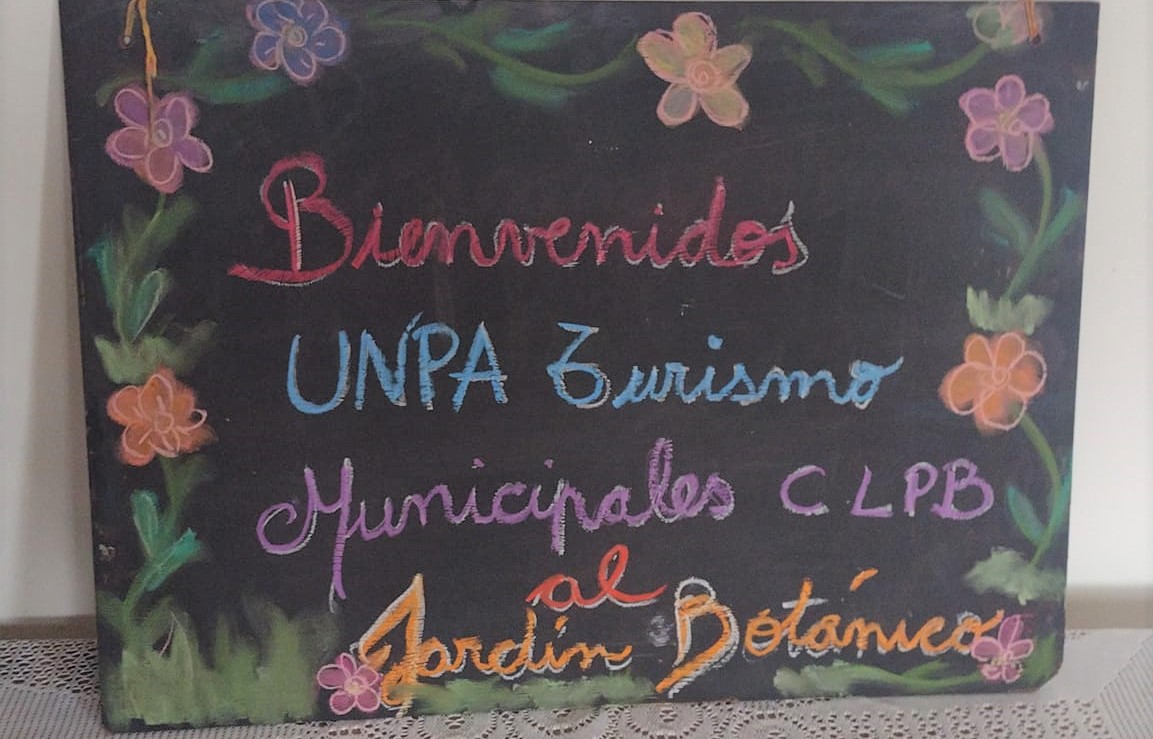 Bienvenidos
UNPA Turismo
Municipales CLPB
al
Jardín Botánico